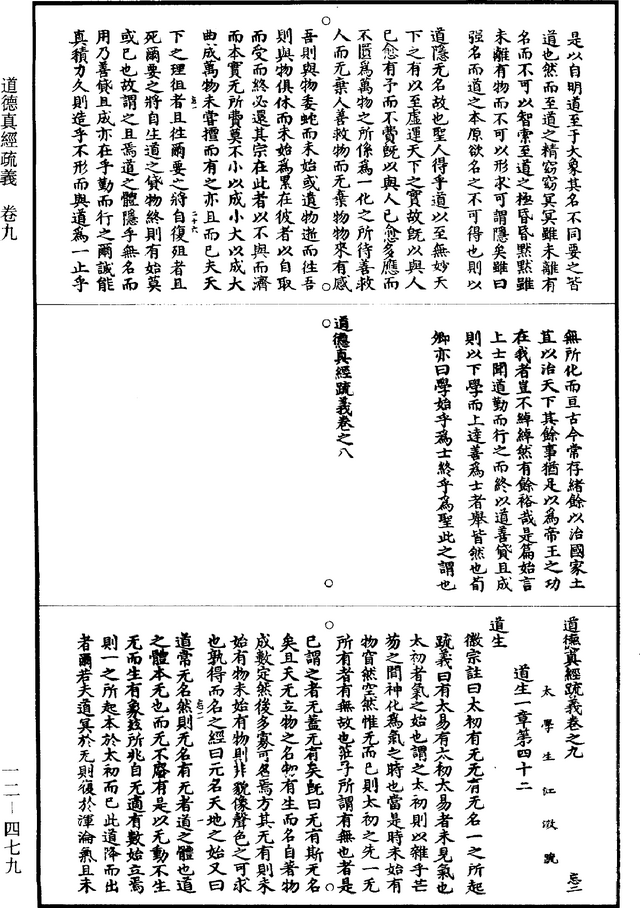 是以自明道至于大象其名不同要之皆
道也然而至道之精窈窈冥冥雖未離有
名而不可以智索至道之極昏昏黙黙雖
未離有物而不可以形求可謂隱矣雖曰
强名而道之本原欲名之不可得也則以
道隱无名故也聖人得乎道以至無妙天
下之有以至虛運天下之實故旣以與人
已愈有予而不費旣以與人已愈多應而
不匱爲萬物之所係爲一化之所待善救
人而无棄人善救物而无棄物物來有感
吾則與物委蛇而未始或遺物逝而往吾
則與物俱休而未始爲累在彼者以自取
而受而終必還其宗在此者以不與而濟
而本實无所費莫不小以成小大以成大
曲成萬物未嘗擅而有之亦且而已夫天
下之理徂者且往爾要之將自復殂者且
死爾要之將自生道之貸物終則有始莫
或已也故謂之且焉道之體隱乎無名而
用乃善貸且成亦在乎勤而行之爾誠能
真積力久則造乎不形而與道爲一止乎
無所化而亘古今常存緒餘以治國家土
苴以治天下其餘事猶足以爲帝王之功
在我者豈不綽綽然有餘裕哉是篇始言
上士聞道勤而行之而終以道善貸且成
則以下學而上達善爲士者舉皆然也荀
卿亦曰學始乎爲士終乎爲聖此之謂也
道德真經疏義卷之八
道德真經疏義卷之九
太學生江澂疏
道生一章第四十二
道生一
徽宗註曰太初有无无有无名一之所起
疏義曰有太易有太初太易者未見氣也
太初者氣之始也謂之太初則以雜乎芒
芴之間神化爲氣之時也當是時未始有
物窅然空然惟无而已則太初之先一无
所有者有無故也莊子所謂有無也者是
已謂之者无蓋无有矣旣曰无有斯无名
矣且天无立物之名物有生而名自著物
成數定然後多寡可名焉方其无有則未
始有物未始有物則非貌像聲色之可求
也孰得而名之經曰无名天地之始又曰
道常无名然則无名有无者道之體也道
之體本无也而无不廢有是以无動不生
无而生有象茲所兆自无適有數始立焉
則一之所起本於太初而已此道降而出
者爾若夫道冥於无則復於渾淪氣且未
道德真經疏義　卷九
一二－四七九